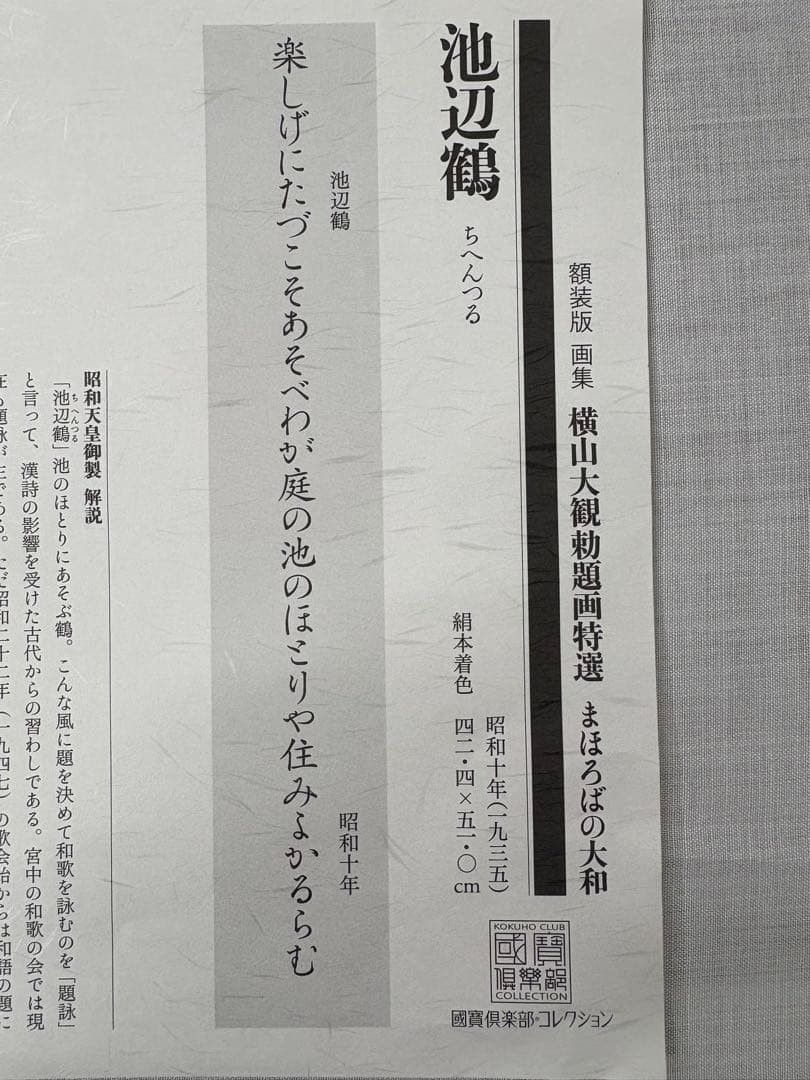 額装版 画集 横山大観勅題画特選 まほろばの大和
池辺鶴 ちへんつる
昭和十年(一九三五)
絹本着色 四二・四×五一・〇cm
KOKUHO CLUB
國寶
倶樂部
COLLECTION
國寶倶楽部・コレクション
池辺鶴 昭和十年
楽しげにたづこそあそべわが庭の池のほとりや住みよかるらむ
昭和天皇御製 解説
「池辺鶴」池のほとりにあそぶ鶴。こんな風に題を決めて和歌を詠むのを「題詠」
ちへんつる
と言って、漢詩の影響を受けた古代からの習わしである。宮中の和歌の会では現
在も題詠が主である。ただ昭和二十二年(一九四七)の歌会始からは和語の題に